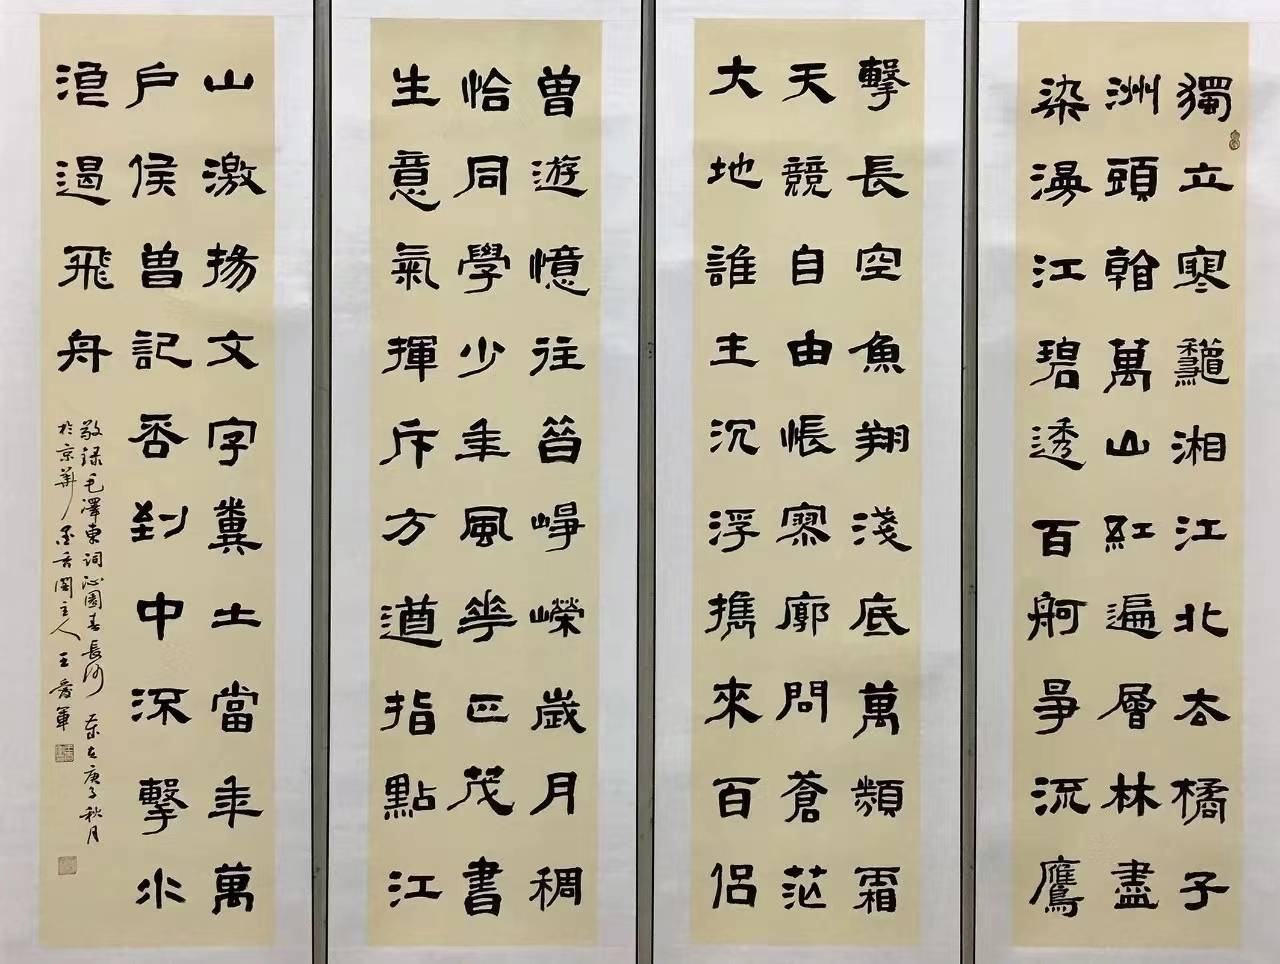 獨立寒龝湘江北去橘子
洲頭看萬山紅遍層林盡
染漫江碧透百舸爭流鷹
擊長空魚翔淺底萬類霜
天競自由悵寥廓問蒼茫
大地誰主沉浮攜來百侶
曾遊憶往昔崢嶸歲月稠
恰同學少年風華正茂書
生意氣揮斥方遒指點江
山激揚文字糞土當年萬
戶侯曾記否到中流擊水
浪遏飛舟
敬録毛澤東詞沁園春長沙 歲在庚子秋月
於京華墨香閣主人王愛軍